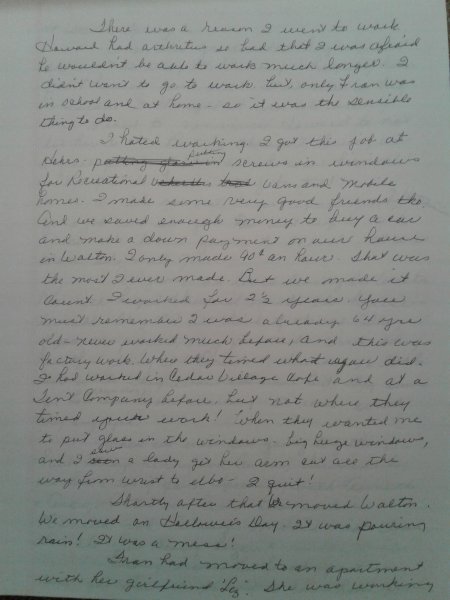 There was a reason I went to work.
Howard had arthritus so bad that I was afraid
he wouldn't be able to work much longer. I
didn't want to go to work but, only Fran was
in school and at home - so it was the sensible
thing to do.
I hated working. I got this job at
putting screws in windows
for Recreational vans and Mobile
homes. I make some very good friends tho.
And we saved enough money to buy a car
and make a down payment on our house
in Walton. I only made 90¢ an hour. That was
the most I ever made. But we made it
count. I worked for 2½ years. You
must remember I was already 64 yrs
old - never worked much before, and this was
factory work. Where they timed what you did.
I had worked in Cedar Village Cafe and at a
Tent Company before, but not where they
timed your work! When they wanted me
to put glass in the windows - big huge windows,
and I saw a lady get her arm cut all the
way from wrist to elbo - I quit!
Shortly after that We moved Walton.
We moved on Hallowe'es Day. It was pouring
rain! It was a mess!
Fran had moved to an apartment
with her girlfriend "Liz". She was working